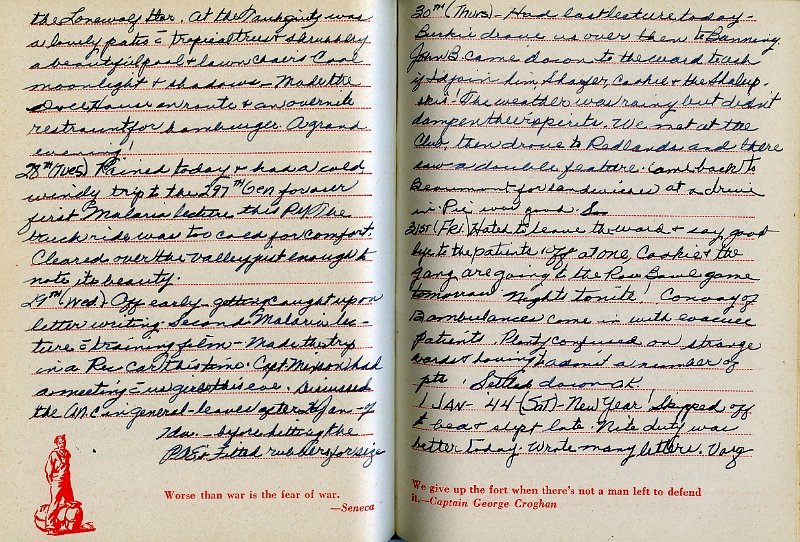 the Lonewolf Her. At the Nauhginty was
a lovely patio = tropical trees & shrubbery
a beautiful pool & lawn chairs Cool
moonlight & shadows — Made the
en route & an overnite
restraunt for hamburger. A grand
evening!
28TH (Tues) Rained today & had a cold,
windy trip to the 297TH Gen for our
first Malaria lecture this P.M. The
truck ride was too cold for comfort.
Cleared over the valley just enough to
note its beauty.
29TH (Wed) Off early - getting caught up on
letter writing. Second Malaria lec-
ture = training film — Made the trip
in a Rec car this time. Capt Mixson had
a meeting = us girls this eve. Discussed
the A.N.C in general - leaves after 4 Jan - of
7 da. - before hitting the
P.O.E. Fitted rubbers for size
Worse than war is the fear of war.
—Seneca
30TH (Thurs) - Had last lecture today -
drove us over then to Banning.
John B. came down to the ward to ask
if I'd join him Shaefer, Cookie & the
skis! The weather was rainy but didn't
dampen their spirits. We met at the
Club, then drove to Redlands and there
saw a double feature. Came back to
Beaumont for sandwiches at a drive
in. Pie was good. So
31ST (Fri) Hated to leave the ward & say good
bye to the patients Off at one, Cookie & the
gang are going to the Rose Bowl game
tomorrow Nights tonite! Convoy of
8 ambulances came in with evacuee
patients. Plenty confused on strange
wards & having hadn't a number of
pts! Settled down OK
1 JAN '44 (Sat) - New Year! Skipped off
& slept late. Nite duty was
better today. Wrote many letters.
We give up the fort when there's not a man left to defend
it.—Captain George Croghan